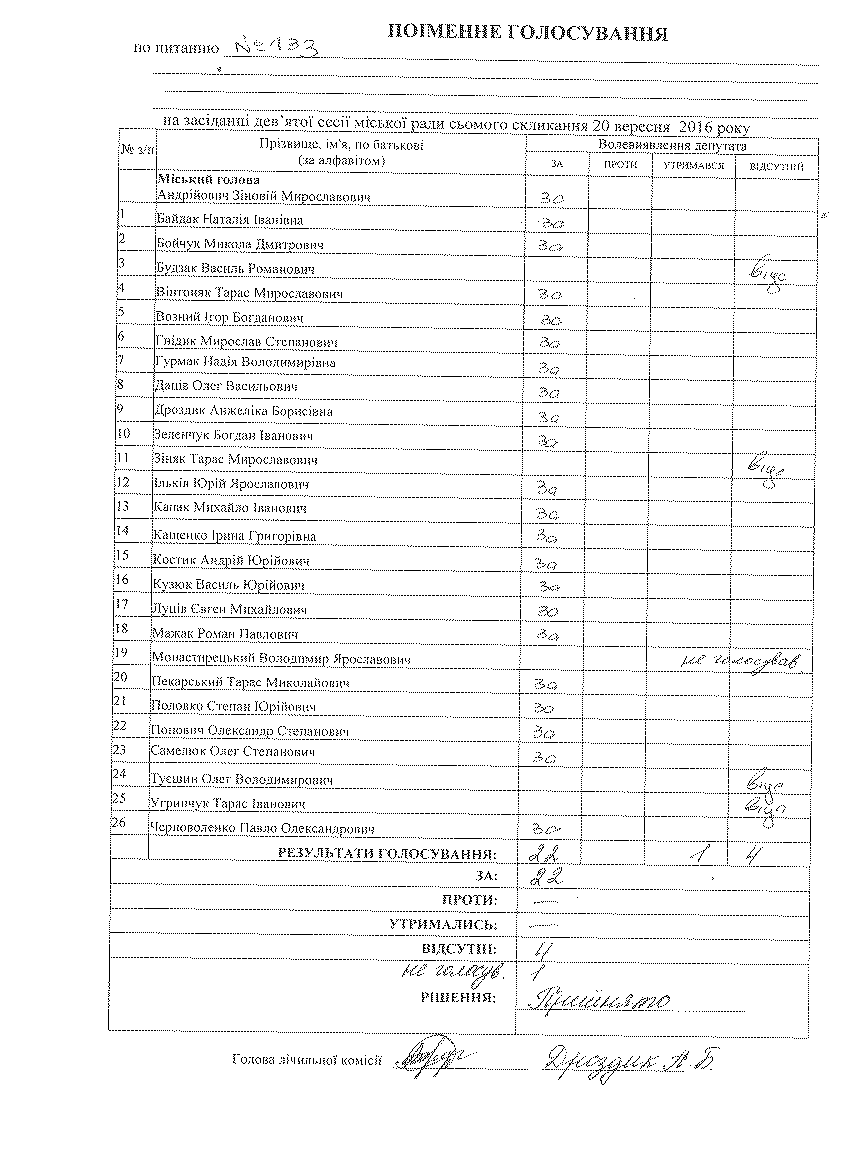 ПОІМЕННЕ ГОЛОСУВАННЯ
по питанню № 133
на засіданні дев'ятої сесії міської ради сьомого скликання 20 вересня 2016 року
№ з/п Прізвище, ім'я, по батькові (за алфавітом) Волевиявлення депутата
ЗА ПРОТИ УТРИМАВСЯ ВІДСУТНІЙ
Міський голова
Андрійович Зіновій Мирославович за
1 Байдак Наталія Іванівна за
2 Бойчук Микола Дмитрович за
3 Будзак Василь Романович відс
4 Вінтоняк Тарас Мирославович за
5 Возний Ігор Богданович за
6 Гнідик Мирослав Степанович за
7 Гурмак Надія Володимирівна за
8 Даців Олег Васильович за
9 Дроздик Анжеліка Борисівна за
10 Зеленчук Богдан Іванович за
11 Зіняк Тарас Мирославович відс
12 Ільків Юрій Ярославович за
13 Капак Михайло Іванович за
14 Кащенко Ірина Григорівна за
15 Костик Андрій Юрійович за
16 Кузюк Василь Юрійович за
17 Луців Євген Михайлович за
18 Мажак Роман Павлович за
19 Монастирецький Володимир Ярославович не голосував
20 Пекарський Тарас Миколайович за
21 Половко Степан Юрійович за
22 Попович Олександр Степанович за
23 Самелюк Олег Степанович за
24 Туєшин Олег Володимирович відс
25 Угринчук Тарас Іванович відс
26 Черноволенко Павло Олександрович за
РЕЗУЛЬТАТИ ГОЛОСУВАННЯ: 22 1 4
ЗА: 22
ПРОТИ: —
УТРИМАЛИСЬ: —
ВІДСУТНІ: 4
не голосув. 1
РІШЕННЯ: Прийнято
Голова лічильної комісії Дроздик А.Б.